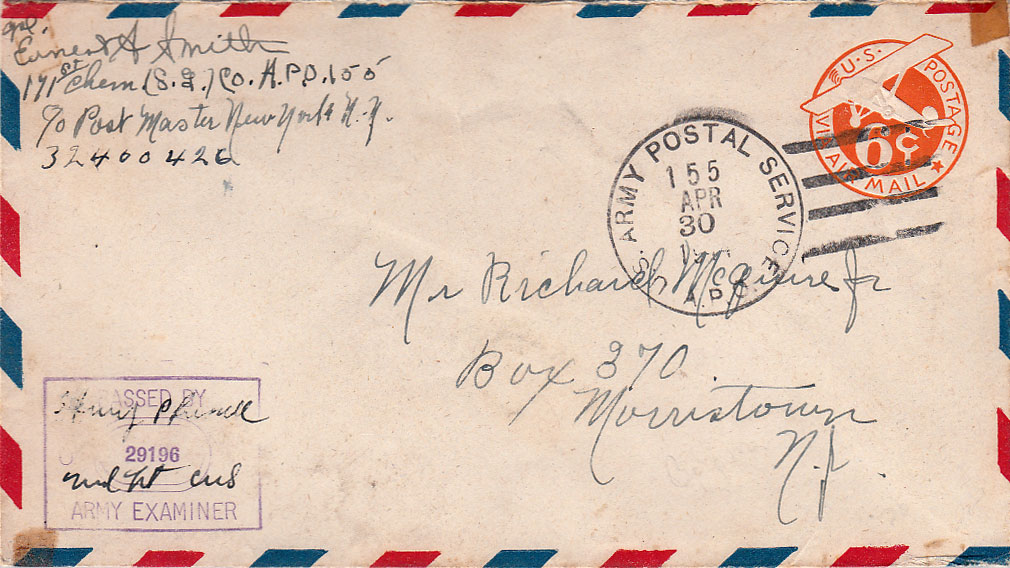 Ernest A Smith
171st Chem. (S.G.) Co. A.P.O. 155
c/o Post Master New York N.Y.
32400426
U.S. POSTAGE
6¢
VIA AIR MAIL
U.S. ARMY POSTAL SERVICE
155
APR
30
A.P.O.
Mr Richard McGuire Jr
Box 370
Morristown
N.J.
PASSED BY
Henry
29196
ARMY EXAMINER